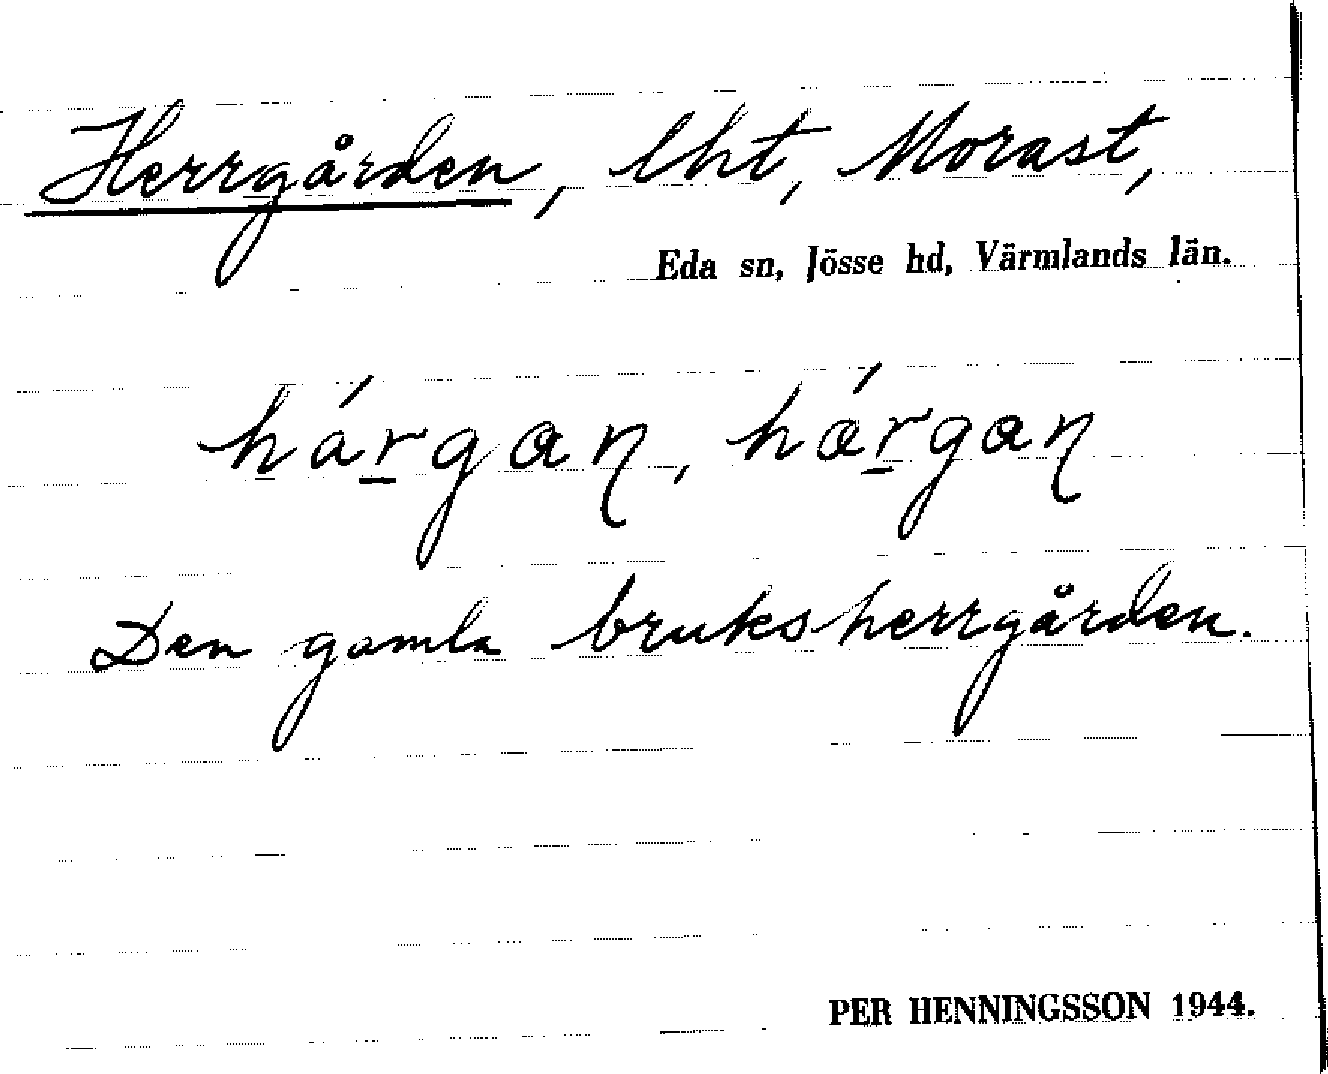 Herrgården, lht, Morast,
Eda sn, Jösse hd, Värmlands län.
hárgaɳ, hǽrgaɳ
Den gamla bruksherrgården.
PER HENNINGSSON 1944.